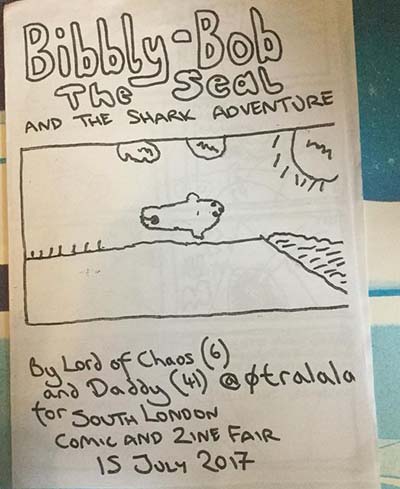 Bibbly-Bob
The Seal
AND THE SHARK ADVENTURE
By Lord of Chaos (6)
and Daddy (41) @øtralala
for SOUTH LONDON
COMIC AND ZINE FAIR
15 JULY 2017